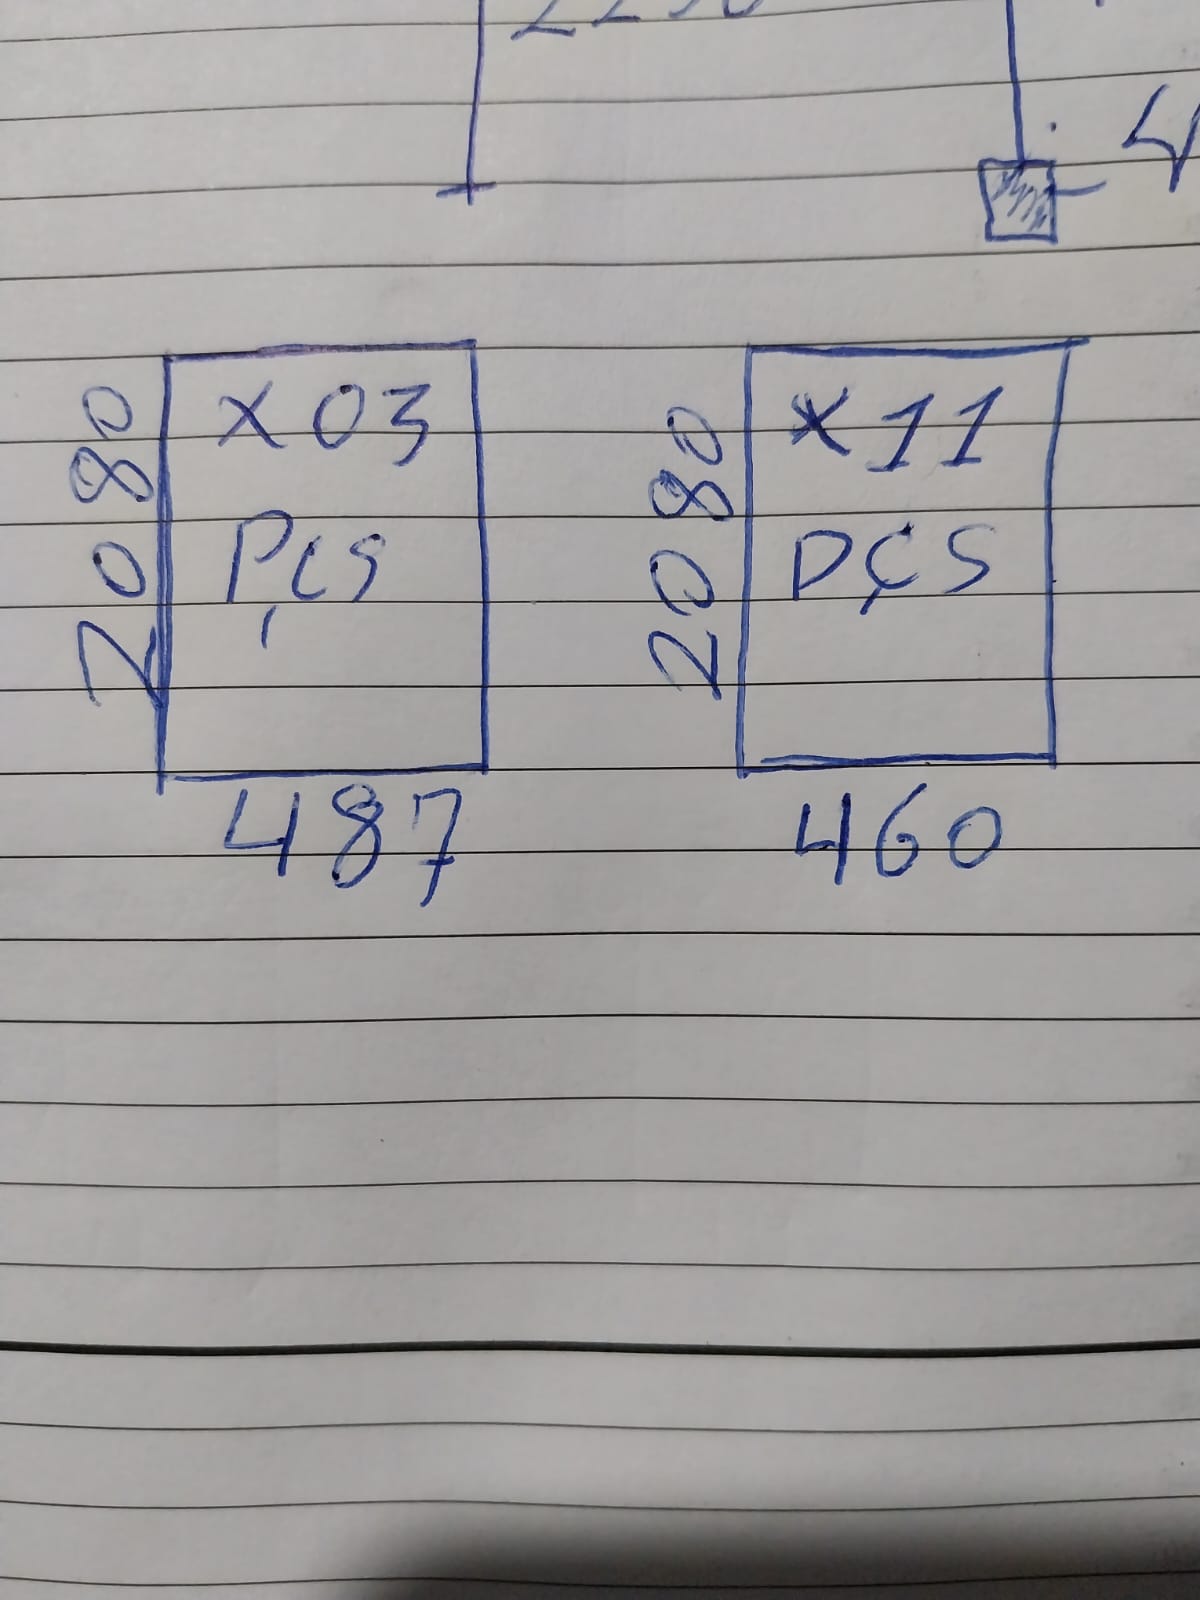 X 03
PÇS
2080
487
X 11
PÇS
2080
460